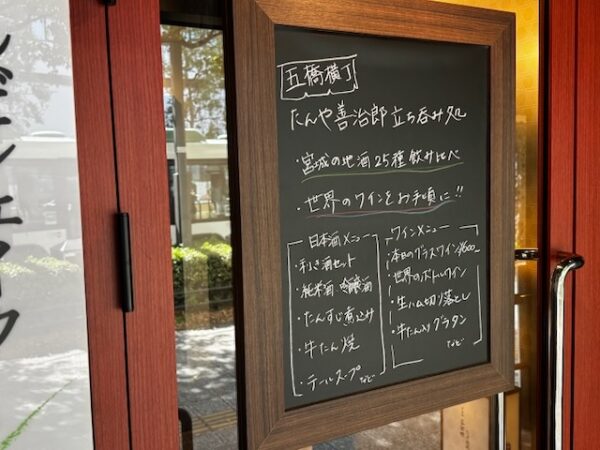 五橋横丁
たんや善治郎立ち呑み処
・宮城の地酒25種飲み比べ
・世界のワインをお手頃に!!
日本酒メニュー
・利き酒セット
・純米酒 吟醸酒
・たんすじ煮込み
・牛たん焼
・テールスープ
など
ワインメニュー
・本日のグラスワイン ¥600~
・世界のボトルワイン
・生ハム切り落とし
・牛たん入りグラタン
など